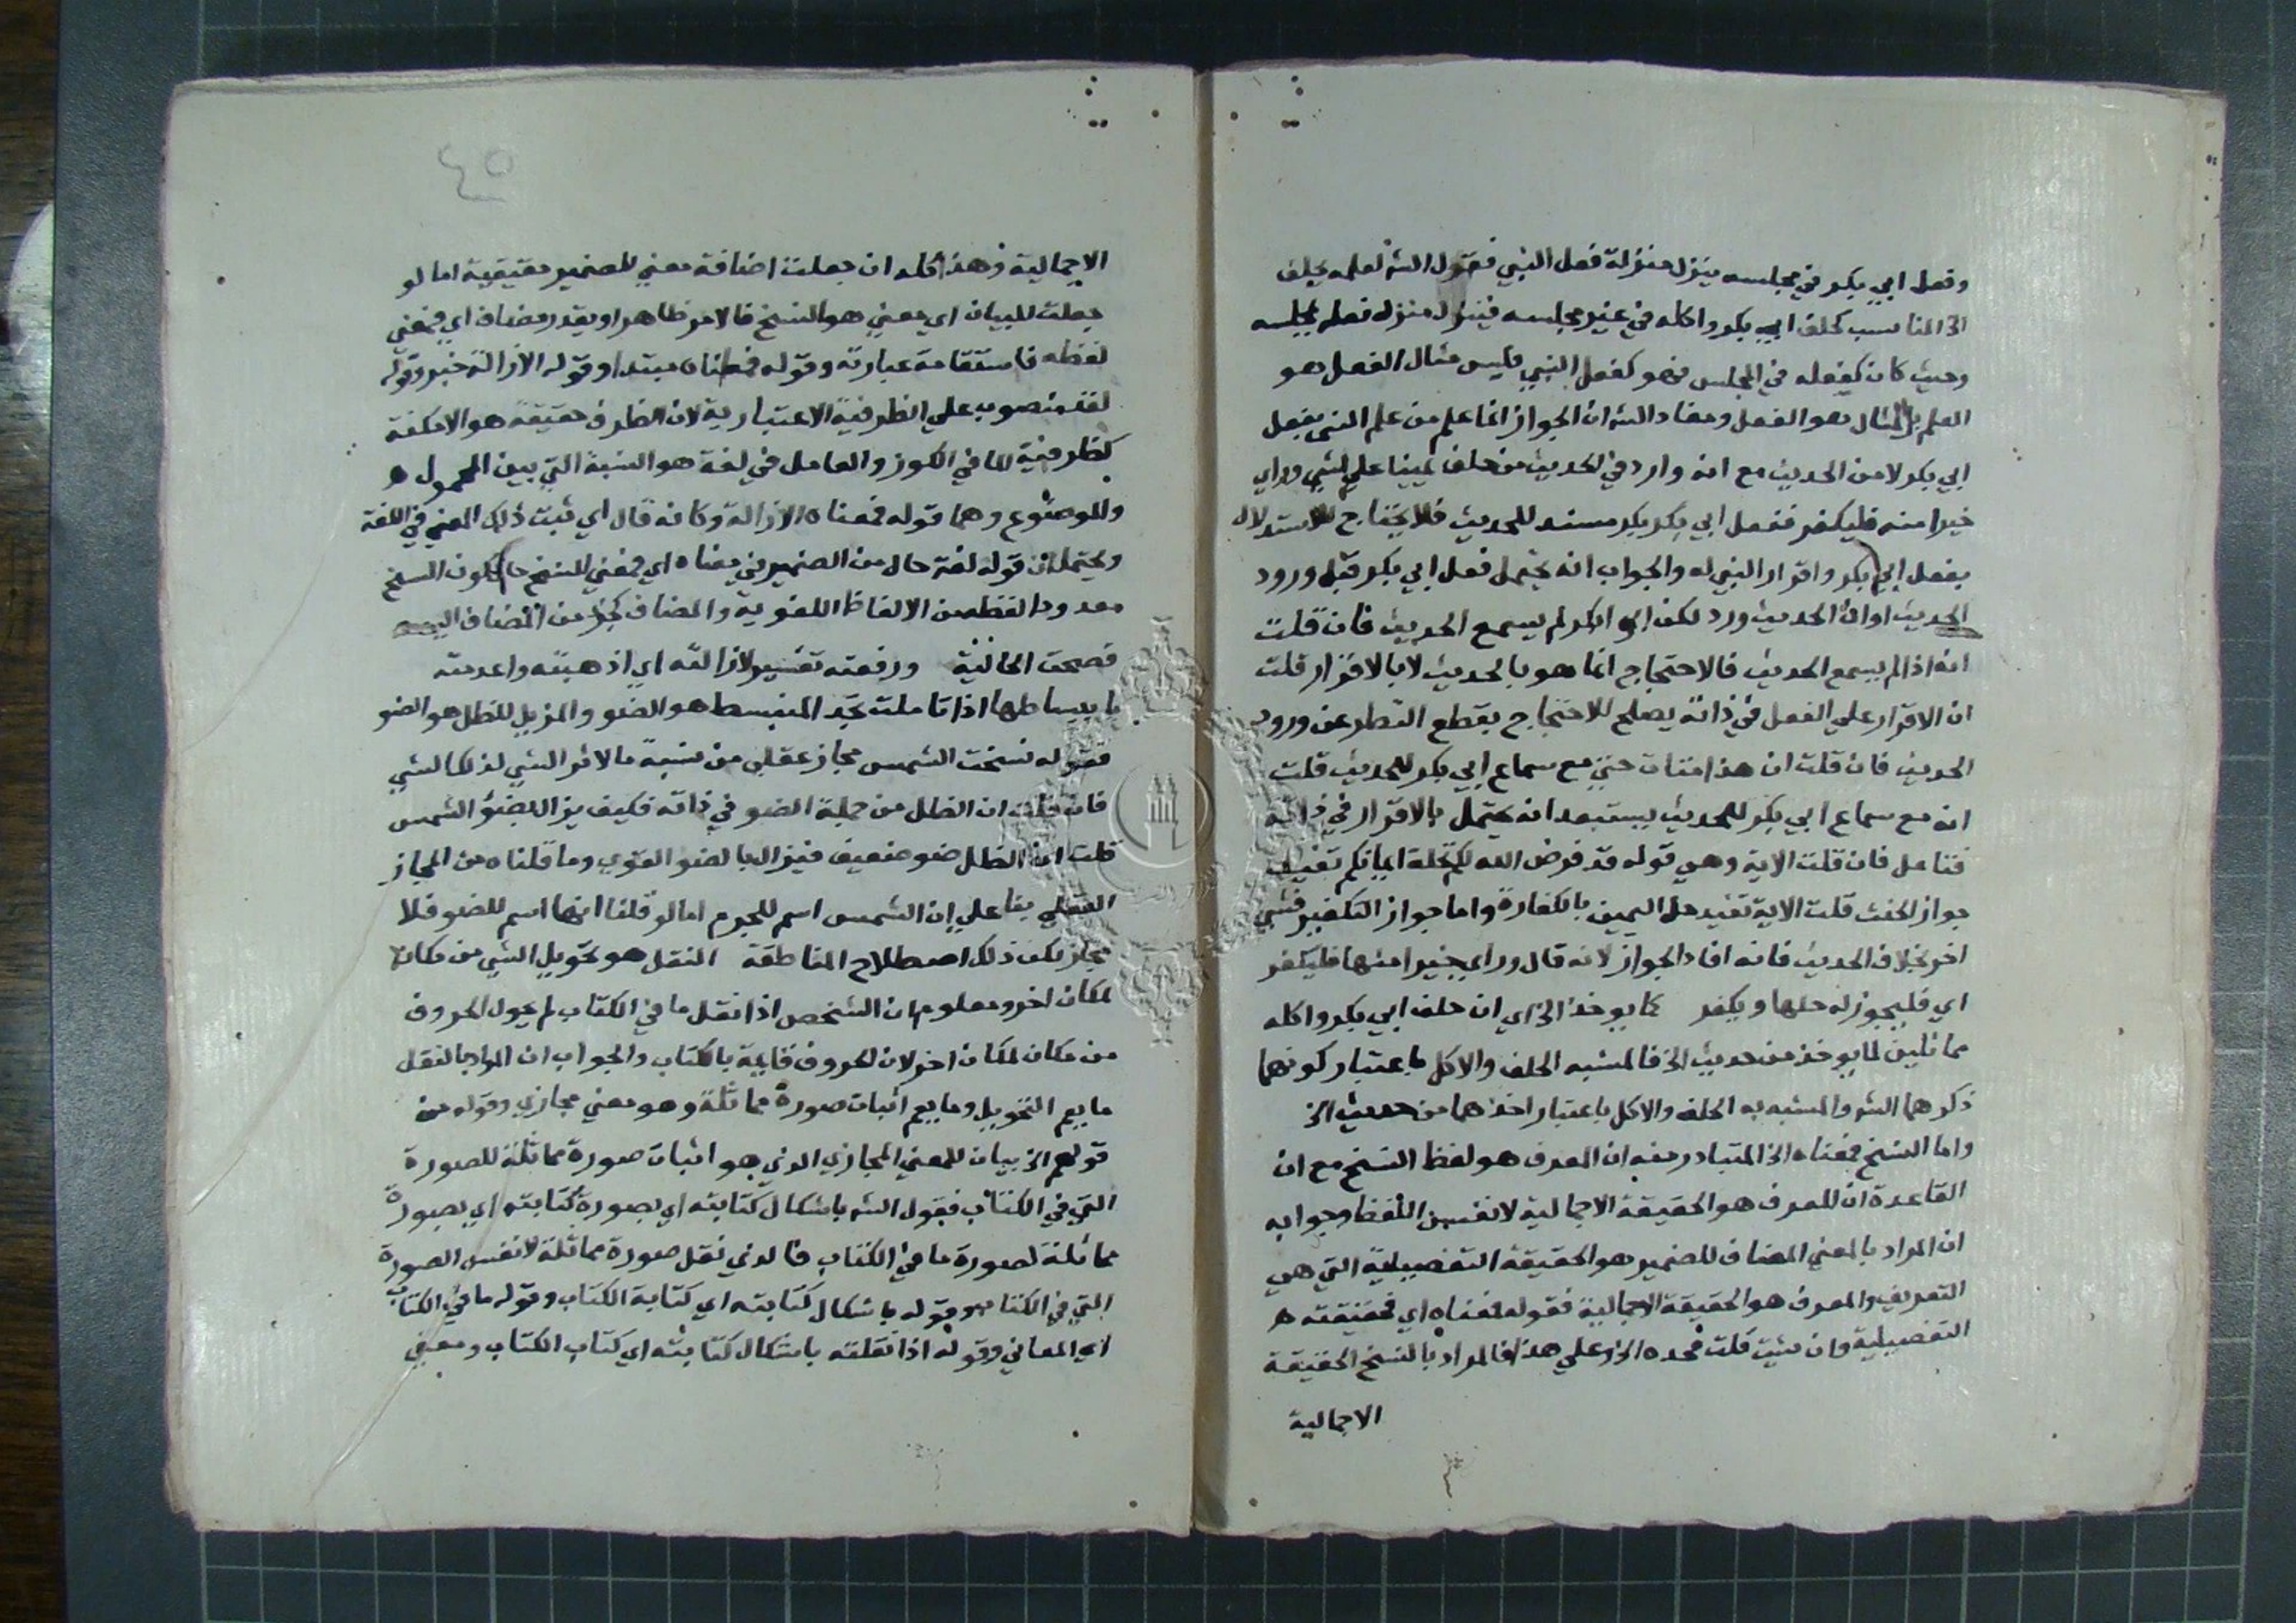 وفعل ابي بكر في مجلسه ينزل منزلة فعل النبي فقول الشه لعلمه بحلف
الخ المناسب كحلف ابي بكر واكله في غير مجلسه فينزل منزله فعله بمجلسه
وحيث كان كفعله في المجلس فهو كفعل النبي فليس مثال الفعل هو
العلم بل المثال هو الفعل ومفاد الشه ان الجواز انما علم من علم النبي بفعل
ابي بكر لا من الحديث مع انه وارد في الحديث من حلف يمينا علي شي وراي
خيرا منه فليكفر ففعل ابي بكر بكر مستند للحديث فلا يحتاج للاستدلال
بفعل ابي بكر واقرار النبي له والجواب انه يحتمل فعل ابي بكر قبل ورود
الحديث او ان الحديث ورد لكن ابو بكر لم يسمع الحديث فان قلت
انه اذا لم يسمع الحديث فالاحتجاج انما هو بالحديث لا بالاقرار قلت
ان الاقرار علي الفعل في ذاته يصلح للاحتجاج بقطع النظر عن ورود
الحديث فان قلت ان هذا متات حتي مع سماع ابي بكر للحديث قلت
انه مع سماع ابي بكر للحديث يستبعد انه يحتمل بالاقرار في ذاته
فتامل فان قلت الاية وهي قوله قد فرض الله لكم تحلة ايمانكم تفيد
جواز الحنث قلت الاية تفيد حل اليمين بالكفارة واما جواز التكفير فشي
اخر بخلاف الحديث فانه افاد الجواز لانه قال وراي خيرا منها فليكفر
اي فليجوز له حلها ويكفر كما يوخذ الخ اي ان حلف ابي بكر واكله
مماثلين لما يوخذ من حديث الخ فالمشبه الحلف والاكل باعتبار كونهما
ذكرهما الشه والمشبه به الحلف والاكل باعتبار اخذهما من حديث الخ
واما النسخ فمعناه الخ المتبادر منه ان المعرف هو لفظ النسخ مع ان
القاعدة ان المعرف هو الحقيقة الاجمالية لا نفس اللفظ وجوابه
ان المراد بالمعني المضاف للضمير هو الحقيقة التفصيلية التي هي
التعريف والمعرف هو الحقيقة الاجمالية فقوله فمعناه اي فحقيقته
التفصيلية وان شيت قلت فحده الخ وعلي هذا فالمراد بالنسخ الحقيقة
الاجمالية
٤٥
الاجمالية وهذا كله ان جعلت اضافة معني للضمير حقيقية اما لو
جعلت للبيان اي معني هو النسخ فالامر ظاهر او يقدر مضاف اي فمعني
لفظه فاستقامة عبارته وقوله فمعناه مبتدا وقوله الازالة خبر وقوله
لغة منصوب علي الظرفية الاعتبارية لان الظرف حقيقة هو الامكنة
كظرفية الما في الكوز والعامل في لغة هو النسبة التي بين المحمول
والموضوع وهما قوله فمعناه الازالة وكانه قال اي ثبت ذلك المعني في اللغة
ويحتمل ان قوله لغة حال من الضمير في معناه اي فمعني النسخ حال كون النسخ
معدودا لفظه من الالفاظ اللغوية والمضاف كجزء من المضاف اليه
فصحت الحالية ورفعته تفسير لازالته اي اذهبته واعدمته
بانبساطها اذا تاملت تجد المنبسط هو الضو والمزيل للظل هو الضو
فقوله نسخت الشمس مجاز عقلي من نسبة ما لاثر الشي لذلك الشي
فان قلت ان الظل من جملة الضو في ذاته فكيف يزال بضو الشمس
قلت ان الظل ضو ضعيف فيزال بالضو القوي وما قلناه من المجاز
العقلي بنا علي ان الشمس اسم للجرم اما لو قلنا انها اسم للضو فلا
مجاز لكن ذلك اصطلاح المناطقة النقل هو تحويل الشي من مكان
لمكان اخر ومعلوم ان الشخص اذا نقل ما في الكتاب لم يحول الحروف
من مكان لمكان اخر لان الحروف قايمة بالكتاب والجواب ان المراد بالنقل
ما يعم التحويل وما يعم اثبات صورة مماثلة وهو معني مجازي وقوله من
قولهم الخ بيان للمعني المجازي الذي هو اثبات صورة مماثلة للصورة
التي في الكتاب فقول الشه باشكال كتابته اي بصورة كتابته اي بصورة
مماثلة لصورة ما في الكتاب فالذي نقل صورة مماثلة لا نفس الصورة
التي في الكتاب وقوله باشكال كتابته اي كتابة الكتاب وقوله ما في الكتاب
اي المعاني وقوله اذا نقلته باشكال كتابته اي كتاب الكتاب ومعني